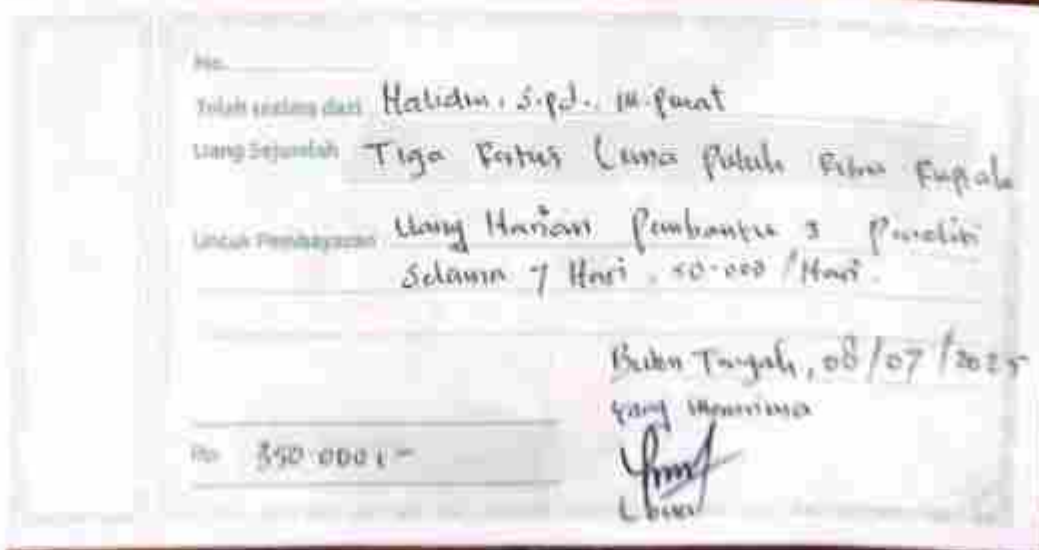 No.
Telah terima dari Halidin, S.Pd., M.
Uang Sejumlah Tiga Ratus Lima Puluh Ribu Rupiah
Untuk Pembayaran Uang Harian Pembantu 3 Peneliti
Selama 7 Hari. 50.000 / Hari.
Buton Tengah, 08/07/2025
yang menerima
Rp. 350.000,-